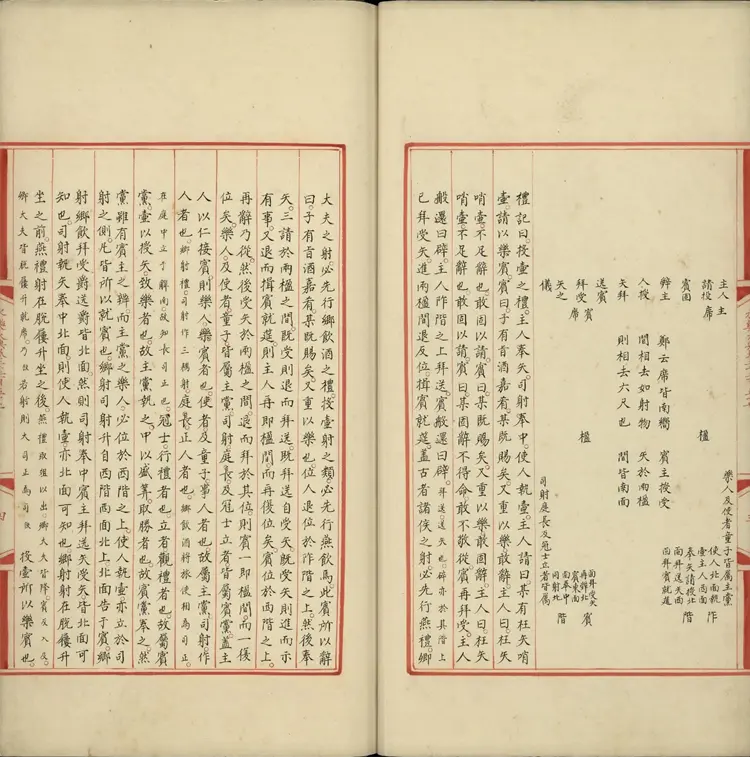 主人主
請投席
賓固
辭主
人投
矢拜
送賓
拜受賓席
矢之
儀
鄭云席皆南嚮
間相去如射物
則相去六尺也
賓主授受
矢於兩楹
間皆南面
楹
楹
樂人及使者童子皆屬主黨
使人北面執
壺主人西面
奉矢請投北
面拜送矢西
面拜賓就筵
阼
階
面拜受矢
再辭北
賓東面
面奉中
司射北
司射庭長及冠士立者皆屬
賓
階
禮記曰投壺之禮主人奉矢司射奉中使人執壺主人請曰某有枉矢哨
壺請以樂賓賓曰子有旨酒嘉肴某既賜矣又重以樂敢辭主人曰枉矢
哨壺不足辭也敢固以請賓曰某既賜矣又重以樂敢固辭主人曰枉矢
哨壺不足辭也敢固以請賓曰某固辭不得命敢不敬從賓再拜受主人
般還曰辟主人阼階上拜送賓般還曰辟拜送送矢也辟亦於其階上
已拜受矢進兩楹間退反位揖賓就筵蓋古者諸侯之射必先行燕禮卿
大夫之射必先行鄉飲酒之禮投壺射之類必先行燕飲焉此賓所以辭
曰子有旨酒嘉肴某既賜矣又重以樂也位人退位於阼階之上然後奉
矢三請於兩楹之間既受則退而拜送既拜送自受矢就受矢則進而示
有事又退而揖賓就筵則主人再即楹間而再復位矣賓位於西階之上
再辭乃從然後受矢於兩楹之間退而拜於其位則賓一即楹間而一復
位矣樂人及使者童子皆屬主黨司射庭長及冠士立者皆屬賓黨蓋主
人以仁接賓則樂人樂賓者也使者及童子事人者也故屬主黨司射作
人者也鄉射禮司射作三耦射庭長正人者也鄉飲酒將旅使相為司正
在庭中立于觶南故知長司正也冠士行禮者也立者觀禮者也故屬賓
黨壺以授矢致樂者也故主黨執之中以盛筭取勝者也故賓黨奉之然
黨雖有賓主之辨而主黨之樂人必位於西階之上使人執壺亦立於司
射之側凡皆所以就賓也鄉射司射升自西階西面北上北面告于賓鄉
射鄉飲拜受爵送爵皆北面然則司射奉中賓主拜送矢受矢皆北面可
知也司射執矢奉中北面則使人執壺亦北面可知也鄉射射在脫屨升
坐之前燕禮射在脫屨升坐之後燕禮取俎以出卿大夫皆降賓反入及
卿大夫皆脫屨升就席乃曰若射則大司正為司射投壺所以樂賓也